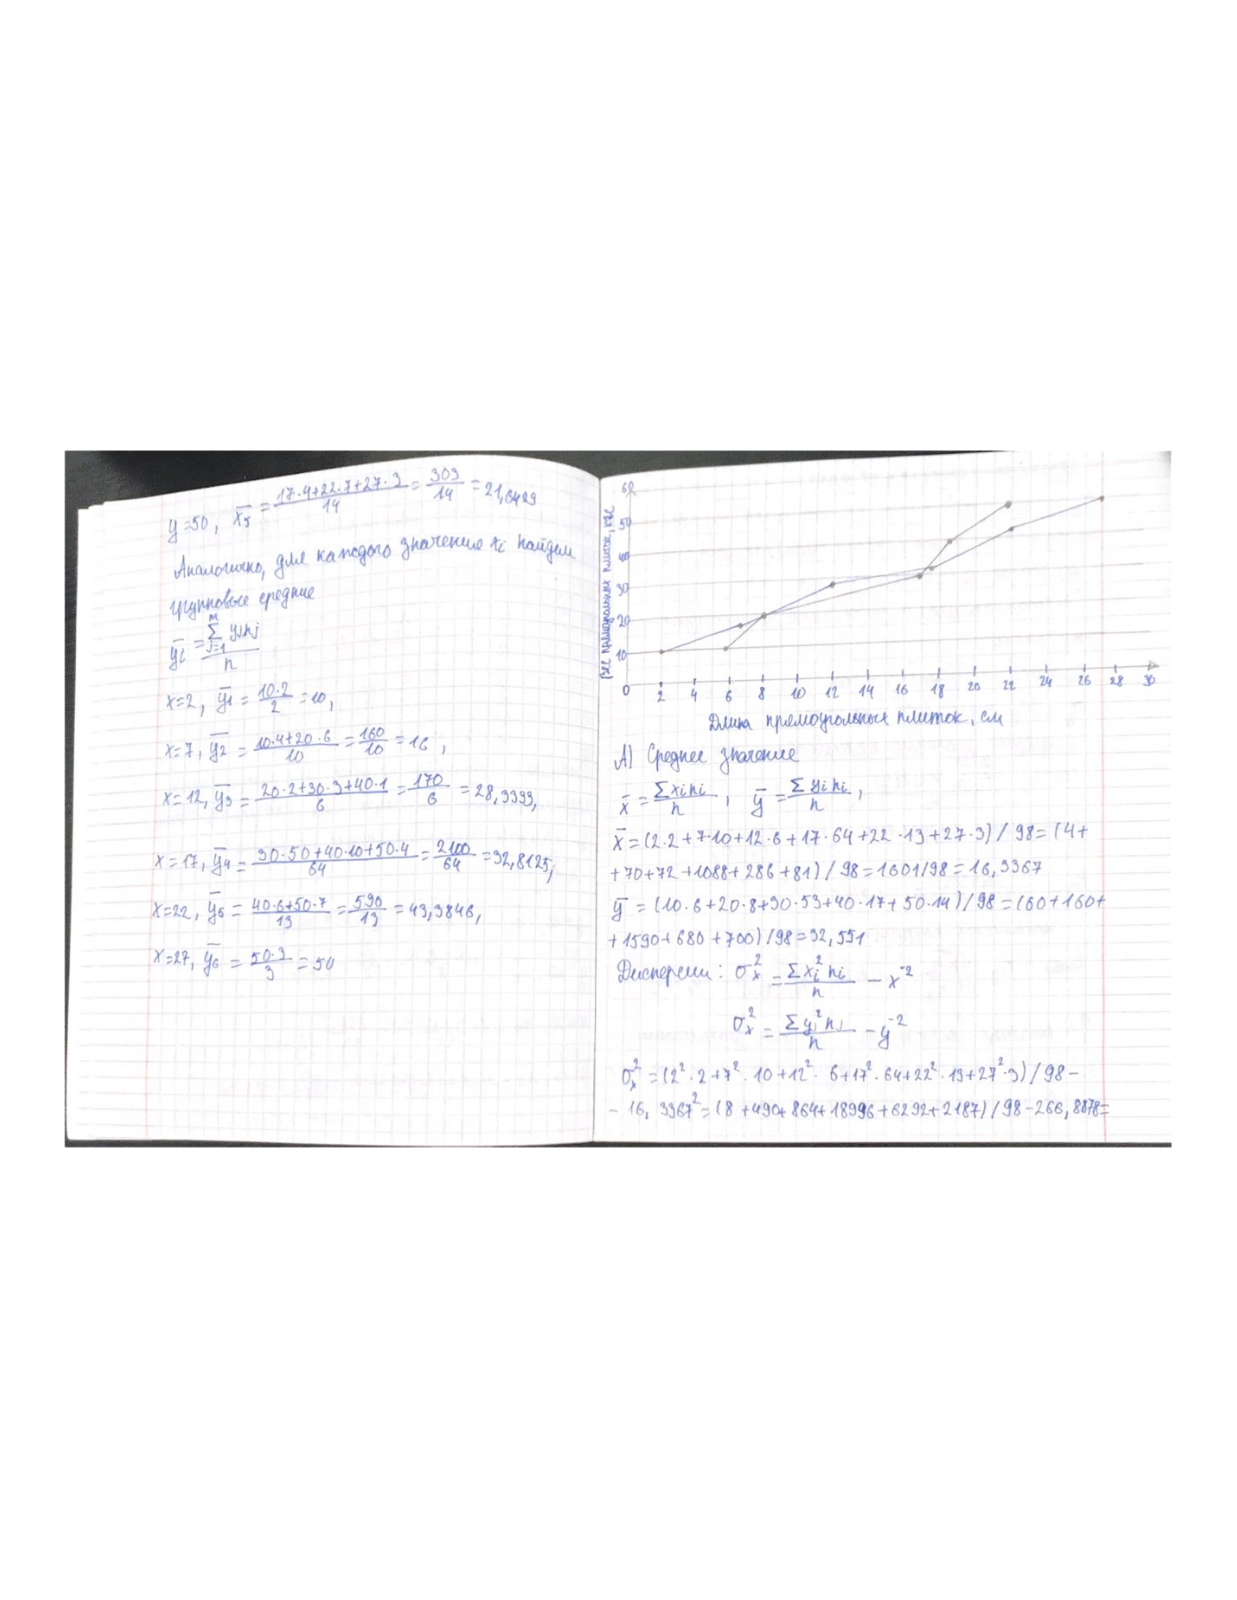 y=50, x̄5 = (17·4+22·7+27·3)/14 = 303/14 = 21,6429
Аналогично, для каждого значения xi найдем
групповые средние
ȳi = (Σ yjnj)/n, m, j=1
x=2, ȳ1 = (10·2)/2 = 10,
x=7, ȳ2 = (10·4+20·6)/10 = 160/10 = 16,
x=12, ȳ3 = (20·2+30·3+40·1)/6 = 170/6 = 28,3333,
x=17, ȳ4 = (30·50+40·10+50·4)/64 = 2100/64 = 32,8125,
x=22, ȳ5 = (40·6+50·7)/13 = 590/13 = 43,3846,
x=27, ȳ6 = (50·3)/3 = 50
Вес прямоугольных плиток, кг
50
40
30
20
10
0 2 4 6 8 10 12 14 16 18 20 22 24 26 28 30
Длина прямоугольных плиток, см
А) Среднее значение
x̄ = (Σxini)/n, ȳ = (Σyini)/n,
x̄ = (2·2+7·10+12·6+17·64+22·13+27·3)/98=(4+
+70+72+1088+286+81)/98=1601/98=16,3367
ȳ = (10·6+20·8+30·53+40·17+50·14)/98=(60+160+
+1590+680+700)/98=32,551
Дисперсии: σx² = (Σxi²ni)/n − x̄²
σx² = (Σyi²ni)/n − ȳ²
σx² = (2²·2+7²·10+12²·6+17²·64+22²·13+27²·3)/98−
− 16,3367²=(8+490+864+18496+6292+2187)/98−266,8878=